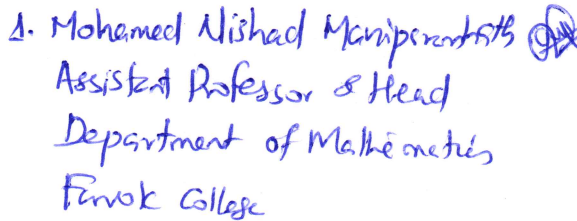 1. Mohamed Nishad Maniparambath
Assistant Professor & Head
Department of Mathematics
Farook College